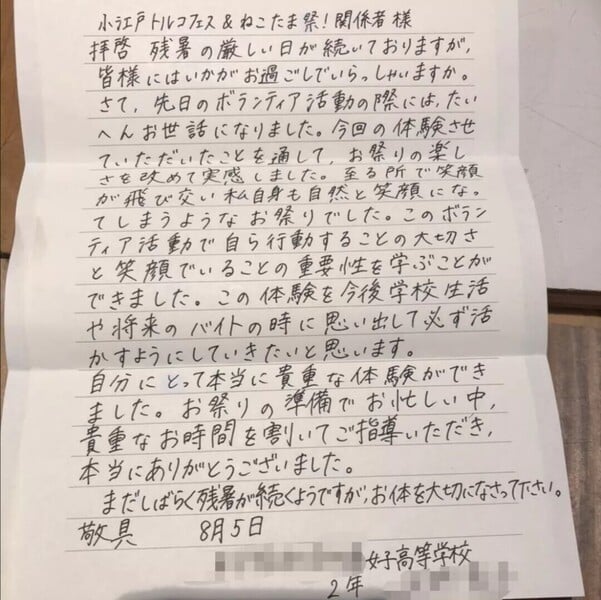 小江戸トルコフェス&ねこたま祭!関係者様
拝啓 残暑の厳しい日が続いておりますが,
皆様にはいかがお過ごしでいらっしゃいますか。
さて,先日のボランティア活動の際には,たい
へんお世話になりました。今回の体験させ
ていただいたことを通して,お祭りの楽し
さを改めて実感しました。至る所で笑顔
が飛び交い私自身も自然と笑顔になっ
てしまうようなお祭りでした。このボラン
ティア活動で自ら行動することの大切さ
と笑顔でいることの重要性を学ぶことが
できました。この体験を今後学校生活
や将来のバイトの時に思い出して必ず活
かすようにしていきたいと思います。
自分にとって本当に貴重な体験ができ
ました。お祭りの準備でお忙しい中,
貴重なお時間を割いてご指導いただき,
本当にありがとうございました。
まだしばらく残暑が続くようですがお体を大切になさって下さい。
敬具 8月5日
女子高等学校
2年